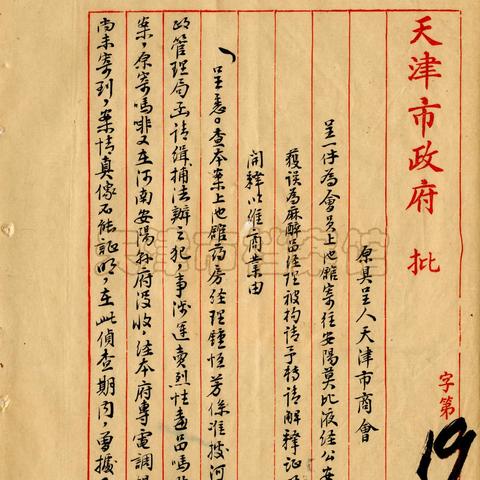 天津市政府 批
字第
19
原具呈人天津市商會
呈一件為會員上池館寄往安陽莫比液經公安
獲誤為麻醉品經理被拘請予轉請解釋証
開釋以維商業由
呈悉。查本案上池館葯房經理鍾恒芳係准據河
政管理局函請緝捕法辦之犯,事涉運賣烈性毒品嗎
案,原寄嗎啡又在河南安陽縣府沒收,經本府專電調
尚未寄到,案情真像不能証明,在此偵查期內,曷據